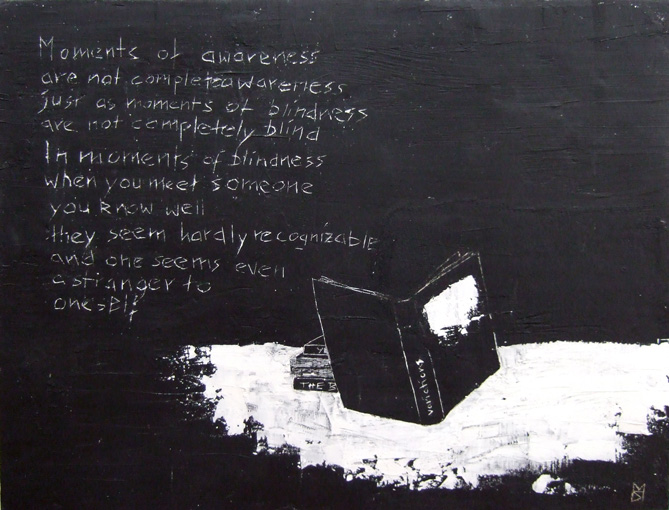 Moments of awareness
are not complete awareness
just as moments of blindness
are not completely blind
In moments of blindness
when you meet someone
you know well
they seem hardly recognizable
and one seems even
a stranger to
oneself
THE B